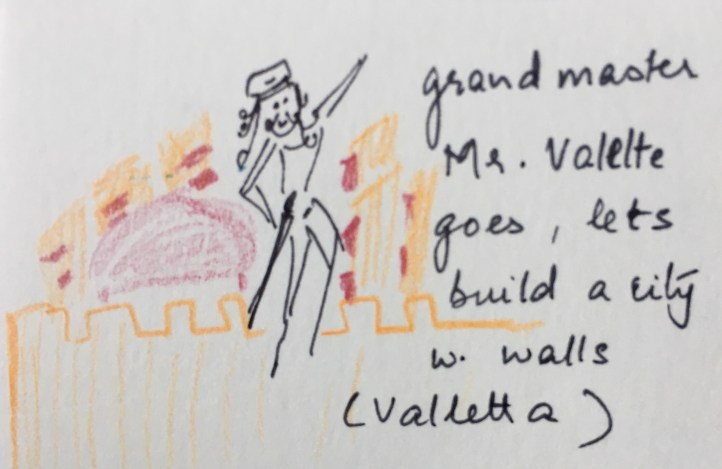 grand master
Mr. Valelte
goes, lets
build a city
w. walls
(Valletta)